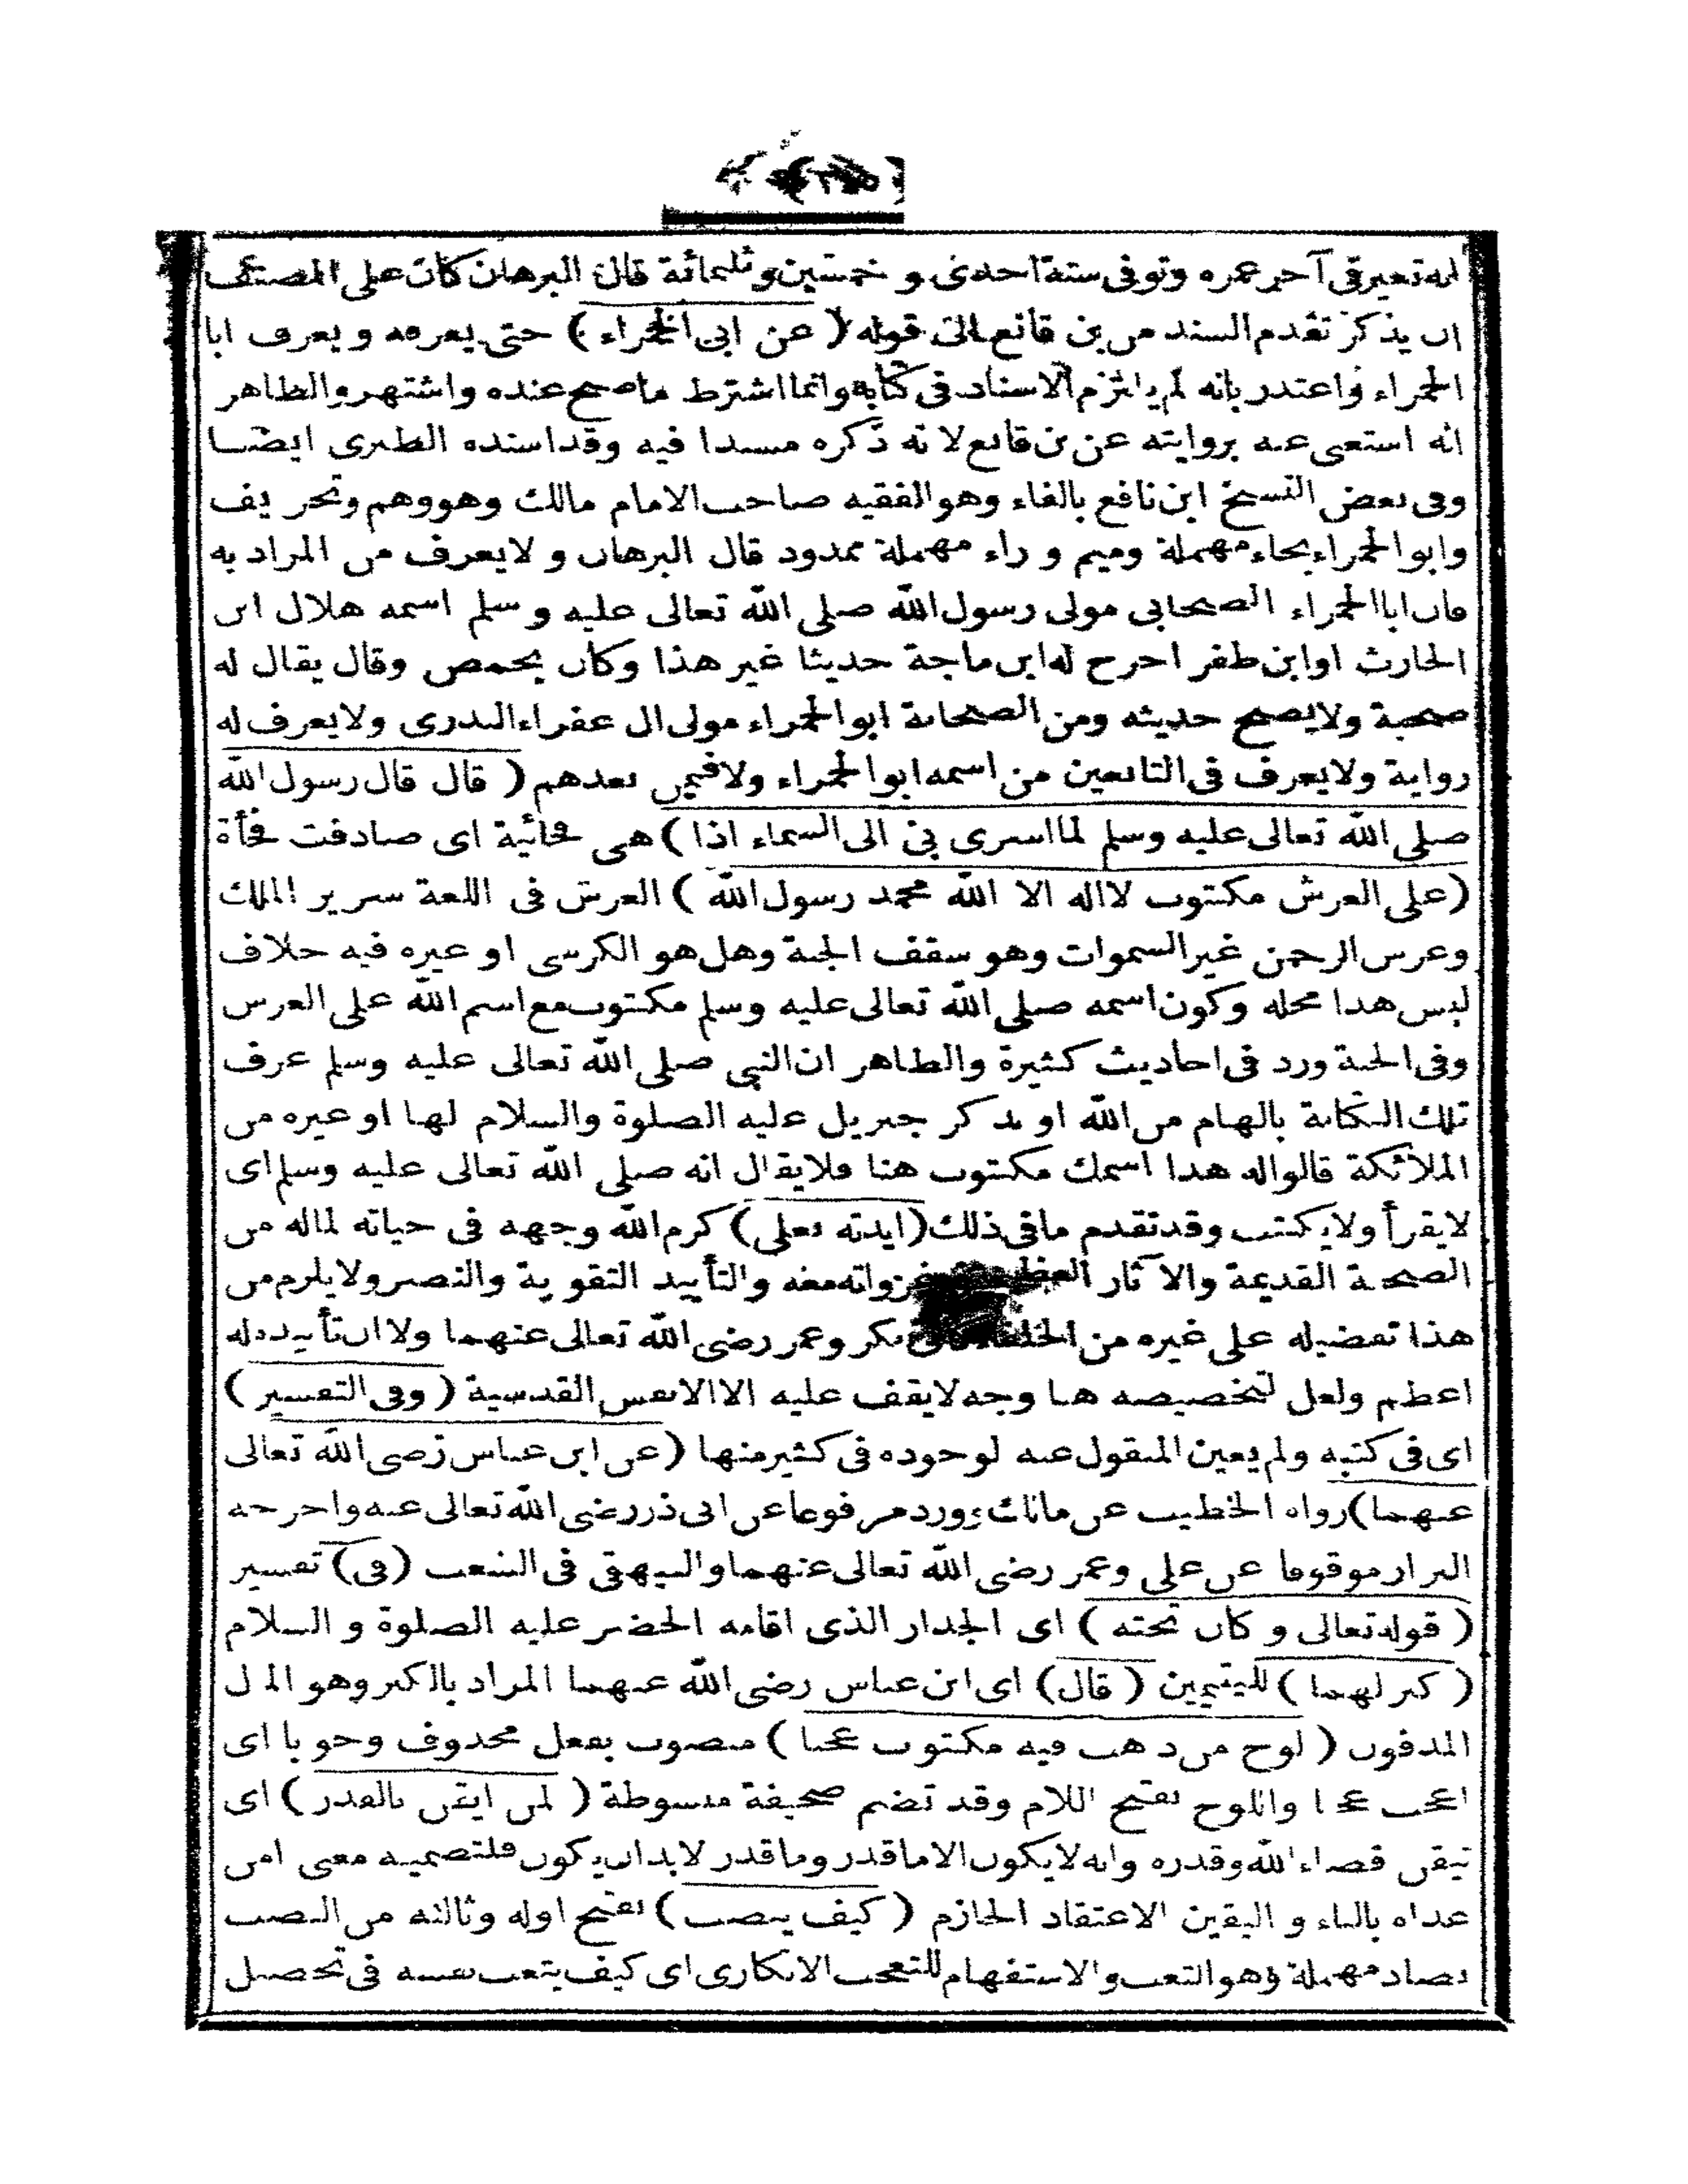 انه تغير في آخر عمره وتوفى سنة احدى و خمسين وثلثمائة قال البرهان كان على المصنف
ان يذكر تقدم السند من بن قانع الى قوله (عن ابى الحمراء) حتى يعرفه و يعرف ابا
الحمراء واعتذر بانه لم يلتزم الاسناد فى كتابه وانما اشترط ما صح عنده واشتهر والظاهر
انه استغنى عنه بروايته عن بن قانع لانه ذكره مسندا فيه وقد اسنده الطبرى ايضا
وفى بعض النسخ ابن نافع بالفاء وهو الفقيه صاحب الامام مالك وهو وهم وتحريف
وابو الحمراء بحاء مهملة وميم و راء مهملة ممدود قال البرهان و لا يعرف من المراد به
فان ابا الحمراء الصحابى مولى رسول الله صلى الله تعالى عليه و سلم اسمه هلال ابن
الحارث او ابن ظفر اخرج له ابن ماجة حديثا غير هذا وكان بحمص وقال يقال له
صحبة ولا يصح حديثه ومن الصحابة ابو الحمراء مولى ال عفراء البدرى ولا يعرف له
رواية ولا يعرف فى التابعين من اسمه ابو الحمراء ولا فيمن بعدهم ( قال قال رسول الله
صلى الله تعالى عليه وسلم لما اسرى بى الى السماء اذا ) هى فجائية اى صادفت فجأة
(على العرش مكتوب لا اله الا الله محمد رسول الله ) العرش فى اللغة سرير الملك
وعرش الرحمن غير السموات وهو سقف الجنة وهل هو الكرسى او غيره فيه خلاف
ليس هذا محله وكون اسمه صلى الله تعالى عليه وسلم مكتوب مع اسم الله على العرش
وفى الجنة ورد فى احاديث كثيرة والظاهر ان النبى صلى الله تعالى عليه وسلم عرف
تلك الكتابة بالهام من الله او بذكر جبريل عليه الصلوة والسلام لها او غيره من
الملائكة قالوا له هذا اسمك مكتوب هنا فلا يقال انه صلى الله تعالى عليه وسلم اى
لا يقرأ ولا يكتب وقد تقدم ما فى ذلك (ايدته بعلى) كرم الله وجهه فى حياته لما له من
الصحبة القديمة والآثار غزواته معه والتأييد التقوية والنصر ولا يلزم من
هذا تفضيله على غيره من بكر وعمر رضى الله تعالى عنهما ولا ان تأييده له
اعظم ولعل لتخصيصه هنا وجه لا يقف عليه الا الانفس القدسية ( وفى التفسير )
اى فى كتبه ولم يعين المنقول عنه لوجوده فى كثير منها (عن ابن عباس رضى الله تعالى
عنهما) رواه الخطيب عن مالك وورد مرفوعا عن ابى ذر رضى الله تعالى عنه واخرجه
البزار موقوفا عن على وعمر رضى الله تعالى عنهما والبيهقى فى الشعب (فى) تفسير
( قوله تعالى و كان تحته ) اى الجدار الذى اقامه الخضر عليه الصلوة و السلام
( كنز لهما ) لليتيمين ( قال) اى ابن عباس رضى الله عنهما المراد بالكنز وهو المال
المدفون ( لوح من ذهب فيه مكتوب عجبا ) منصوب بفعل محذوف وجوبا اى
اعجب عجبا واللوح بفتح اللام وقد تضم صحيفة مبسوطة ( لمن ايقن بالقدر ) اى
تيقن قضاء الله وقدره وانه لا يكون الا ما قدر وما قدر لا بد ان يكون فلتضمينه معنى امن
عداه بالباء و اليقين الاعتقاد الجازم ( كيف ينصب ) بفتح اوله وثالثه من النصب
بصاد مهملة وهو التعب والاستفهام للتعجب الانكارى اى كيف يتعب نفسه فى تحصيل